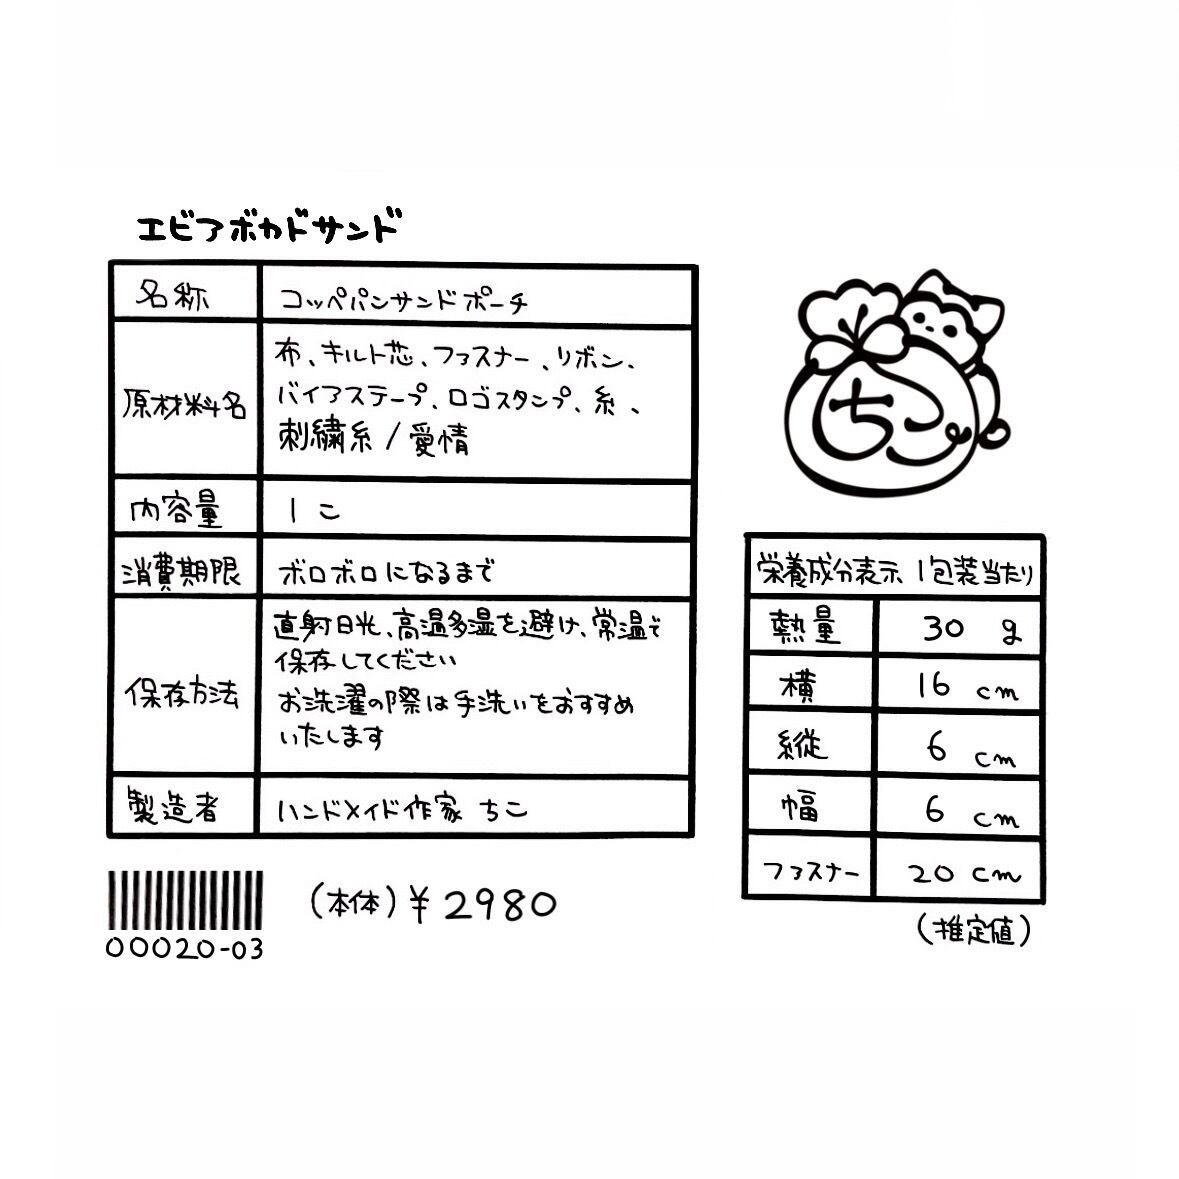 エビアボカドサンド
名称 コッペパンサンドポーチ
原材料名 布、キルト芯、ファスナー、リボン、
バイアステープ、ロゴスタンプ、糸、
刺繍糸/愛情
内容量 1こ
消費期限 ボロボロになるまで
保存方法 直射日光、高温多湿を避け、常温で
保存してください
お洗濯の際は手洗いをおすすめ
いたします
製造者 ハンドメイド作家 ちこ
00020-03
(本体)¥2980
ちこ
栄養成分表示 1包装当たり
熱量 30 g
横 16 cm
縦 6 cm
幅 6 cm
ファスナー 20 cm
(推定値)